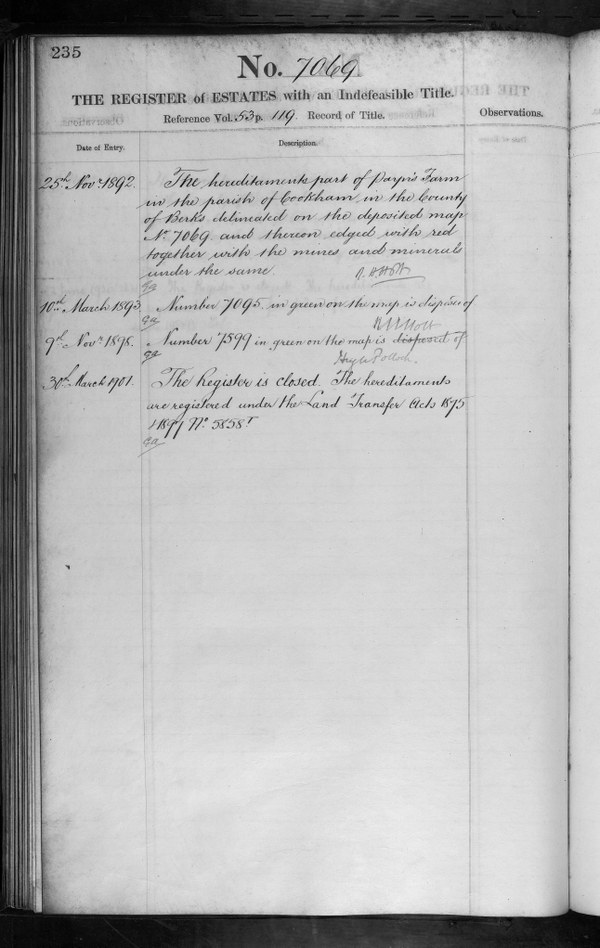 235
No. 7069
THE REGISTER of ESTATES with an Indefeasible Title.
Reference Vol. 53 p. 119. Record of Title.
Observations.
Date of Entry.
Description.
25th Novr 1892.
The hereditaments part of Farm
in the parish of Cookham in the County
of Berks delineated on the deposited map
No. 7069. and thereon edged with red
together with the mines and minerals
under the same.
R. H. Holt
10th March 1893.
Number 7095. in green on the map is disposed of
R. H. Holt
9th Novr 1898.
Number 7599 in green on the map is disposed of
Pollock.
30th March 1901.
The Register is closed. The hereditaments
are registered under the Land Transfer Acts 1875
& 1897 No. 5858